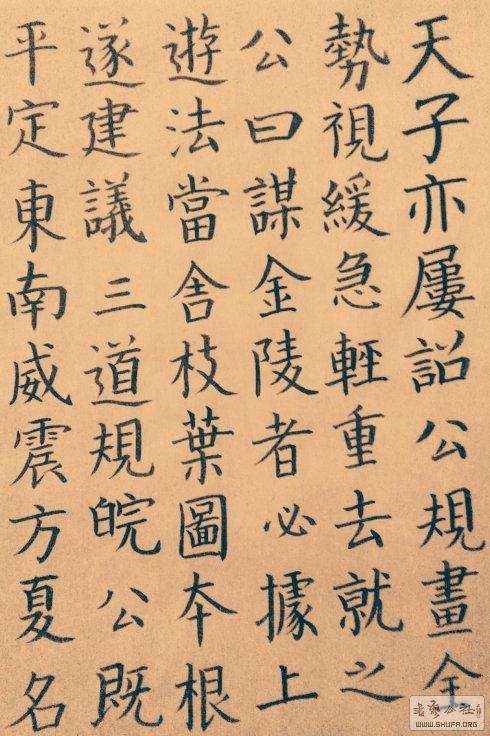 天子亦屢詔公規畫全
勢視緩急輕重去就之
公曰謀金陵者必據上
遊法當舍枝葉圖本根
遂建議三道規皖公既
平定東南威震方夏名
WWW.SHUFA.ORG